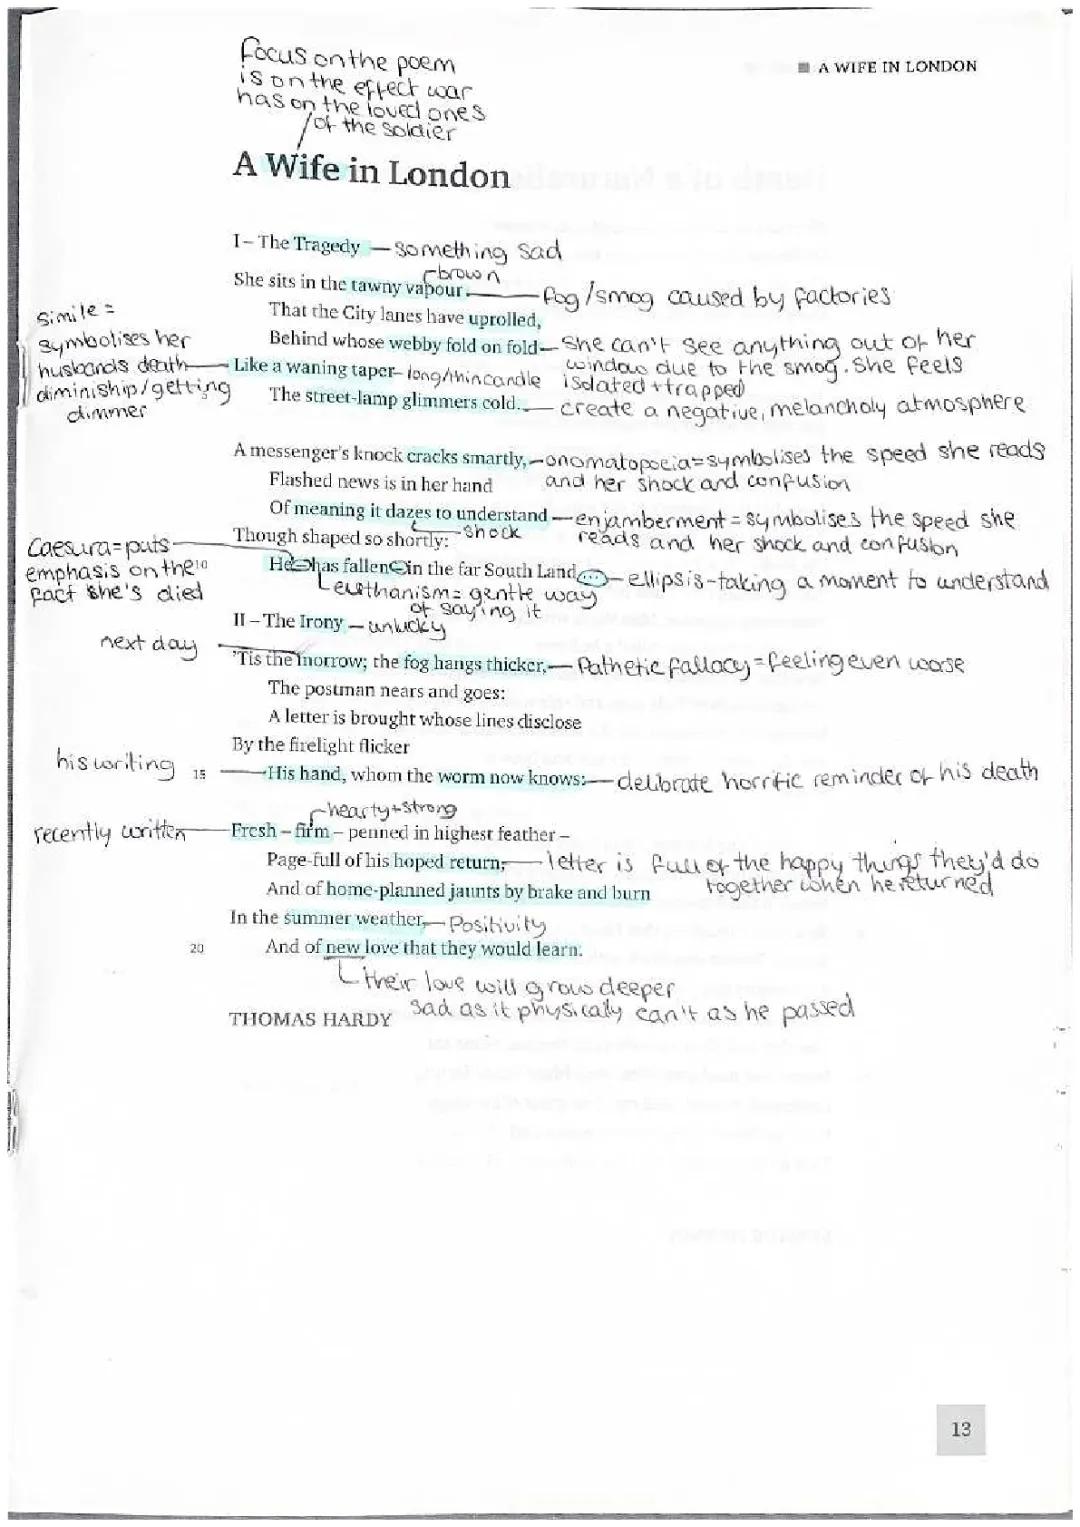 focus on the poem
is on the effect war
has on the loved ones
of the soldier
A WIFE IN LONDON
A Wife in London
I – The Tragedy — something sad
brown
She sits in the tawny vapour — fog/smog caused by factories
That the City lanes have uprolled,
Behind whose webby fold on fold — She can't see anything out of her
window due to the smog. She feels
isolated + trapped
simile =
symbolises her
husbands death
diminiship/getting
dimmer
Like a waning taper - long/thin candle
The street-lamp glimmers cold. — create a negative, melancholy atmosphere
A messenger's knock cracks smartly, — onomatopoeia = symbolises the speed she reads
and her shock and confusion
Flashed news is in her hand
Of meaning it dazes to understand — enjamberment = symbolises the speed she
reads and her shock and confusion
shock
Though shaped so shortly:
Caesura = puts
emphasis on the
fact she's died
10
He – has fallen – in the far South Land... — ellipsis - taking a moment to understand
euthanism = gentle way
of saying it
II – The Irony — unlucky
next day
'Tis the morrow; the fog hangs thicker, — Pathetic fallacy = feeling even worse
The postman nears and goes:
A letter is brought whose lines disclose
By the firelight flicker
his writing
15 His hand, whom the worm now knows: — delibrate horrific reminder of his death
hearty + strong
recently written
Fresh – firm – penned in highest feather –
Page-full of his hoped return, — letter is full of the happy things they'd do
together when he returned
And of home-planned jaunts by brake and burn
In the summer weather, — Positivity
20 And of new love that they would learn.
their love will grow deeper
sad as it physically can't as he passed
THOMAS HARDY
13